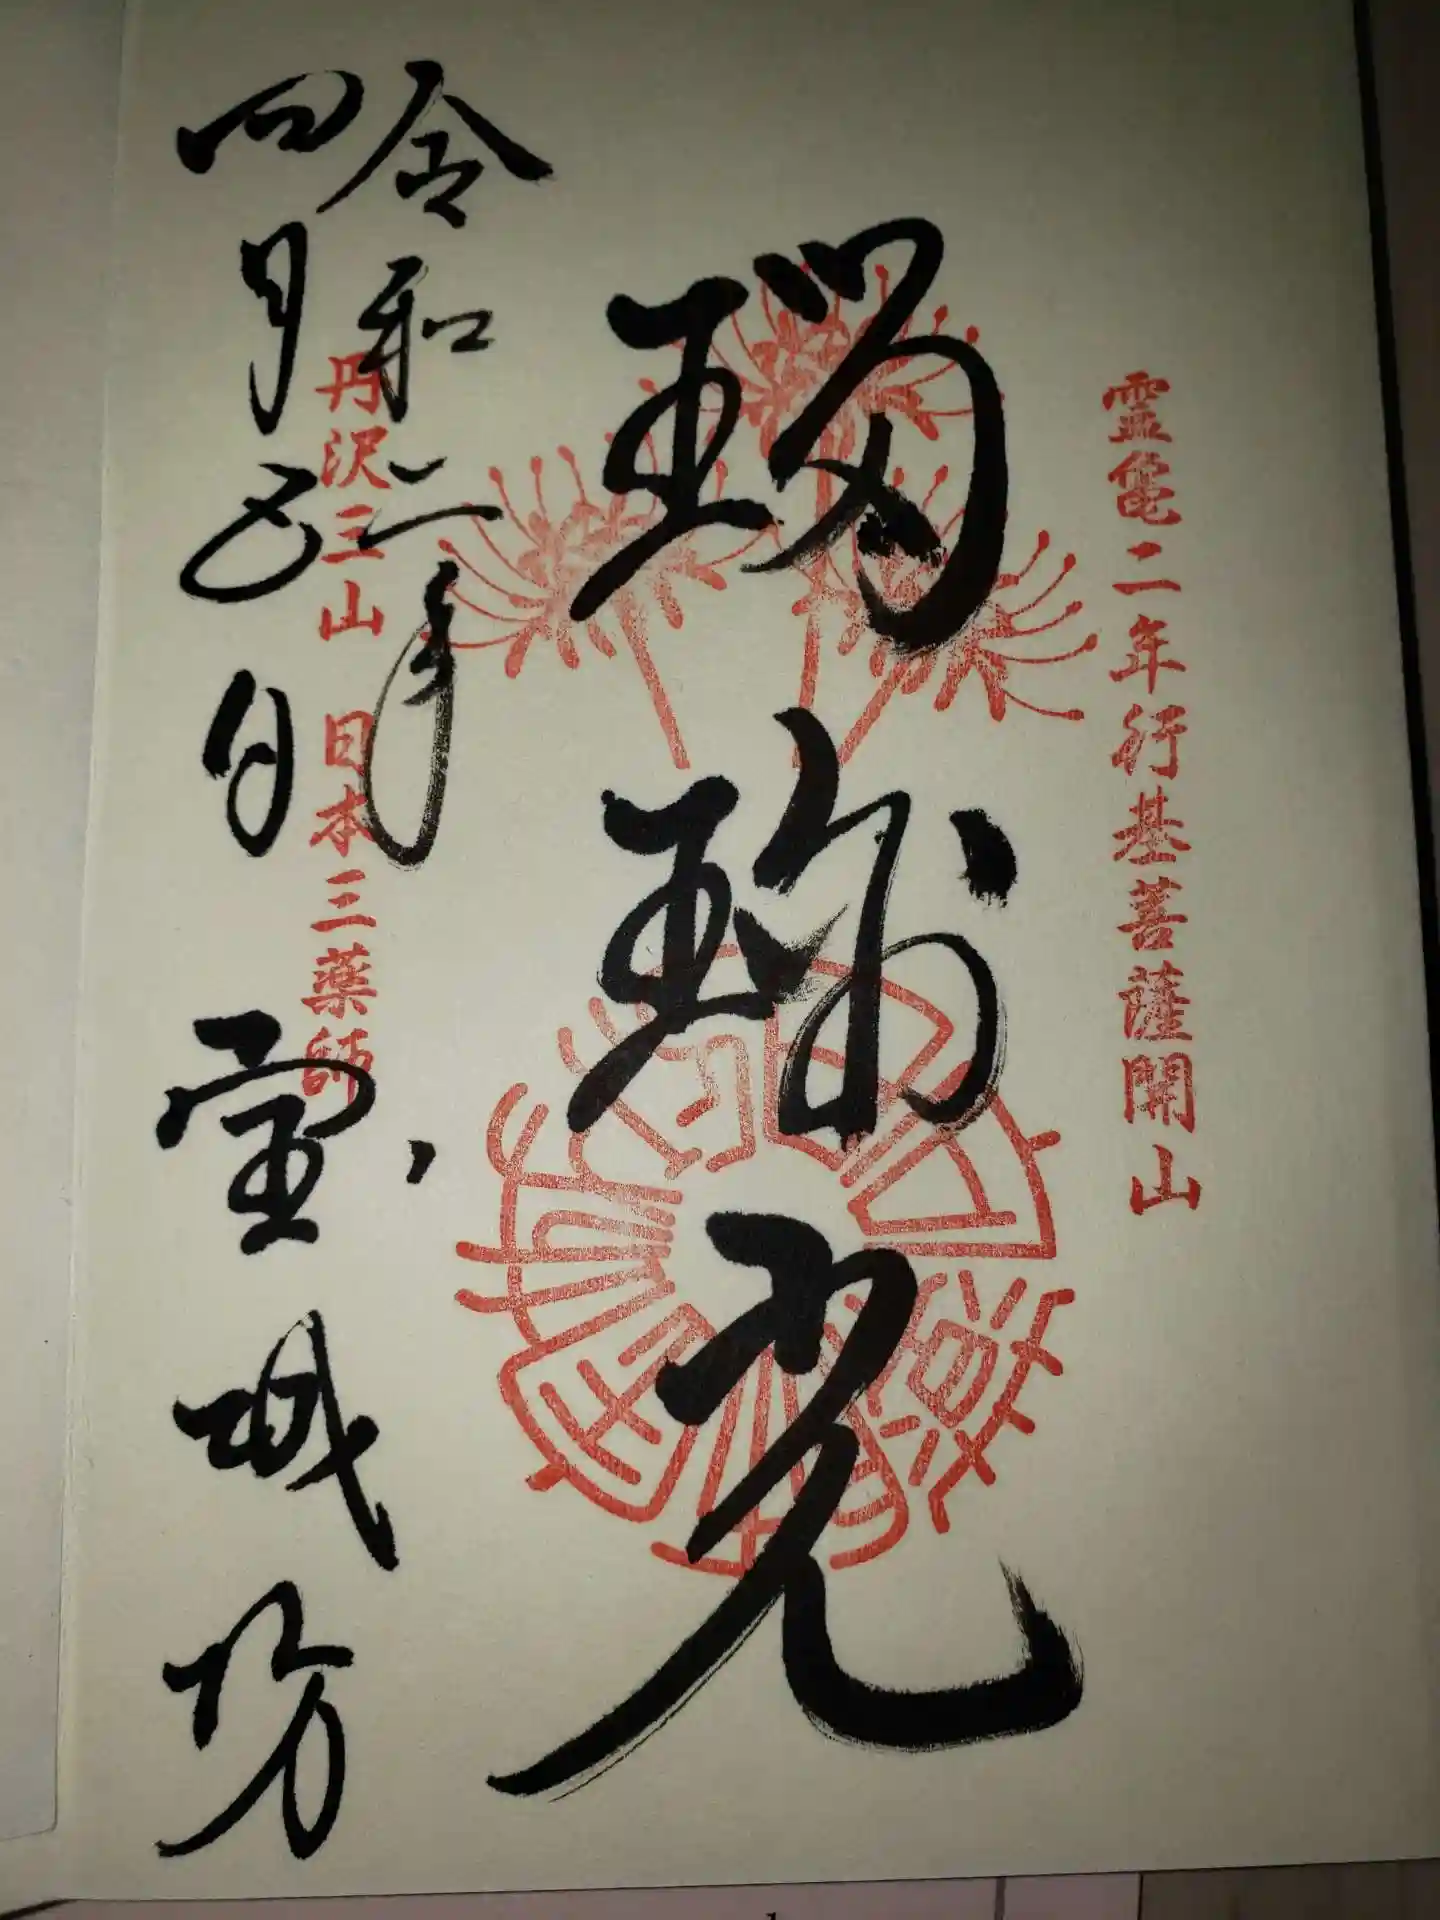 霊亀二年行基菩薩開山
瑠璃光
令和二年
丹沢三山 日本三薬師
四月五日 宝城坊